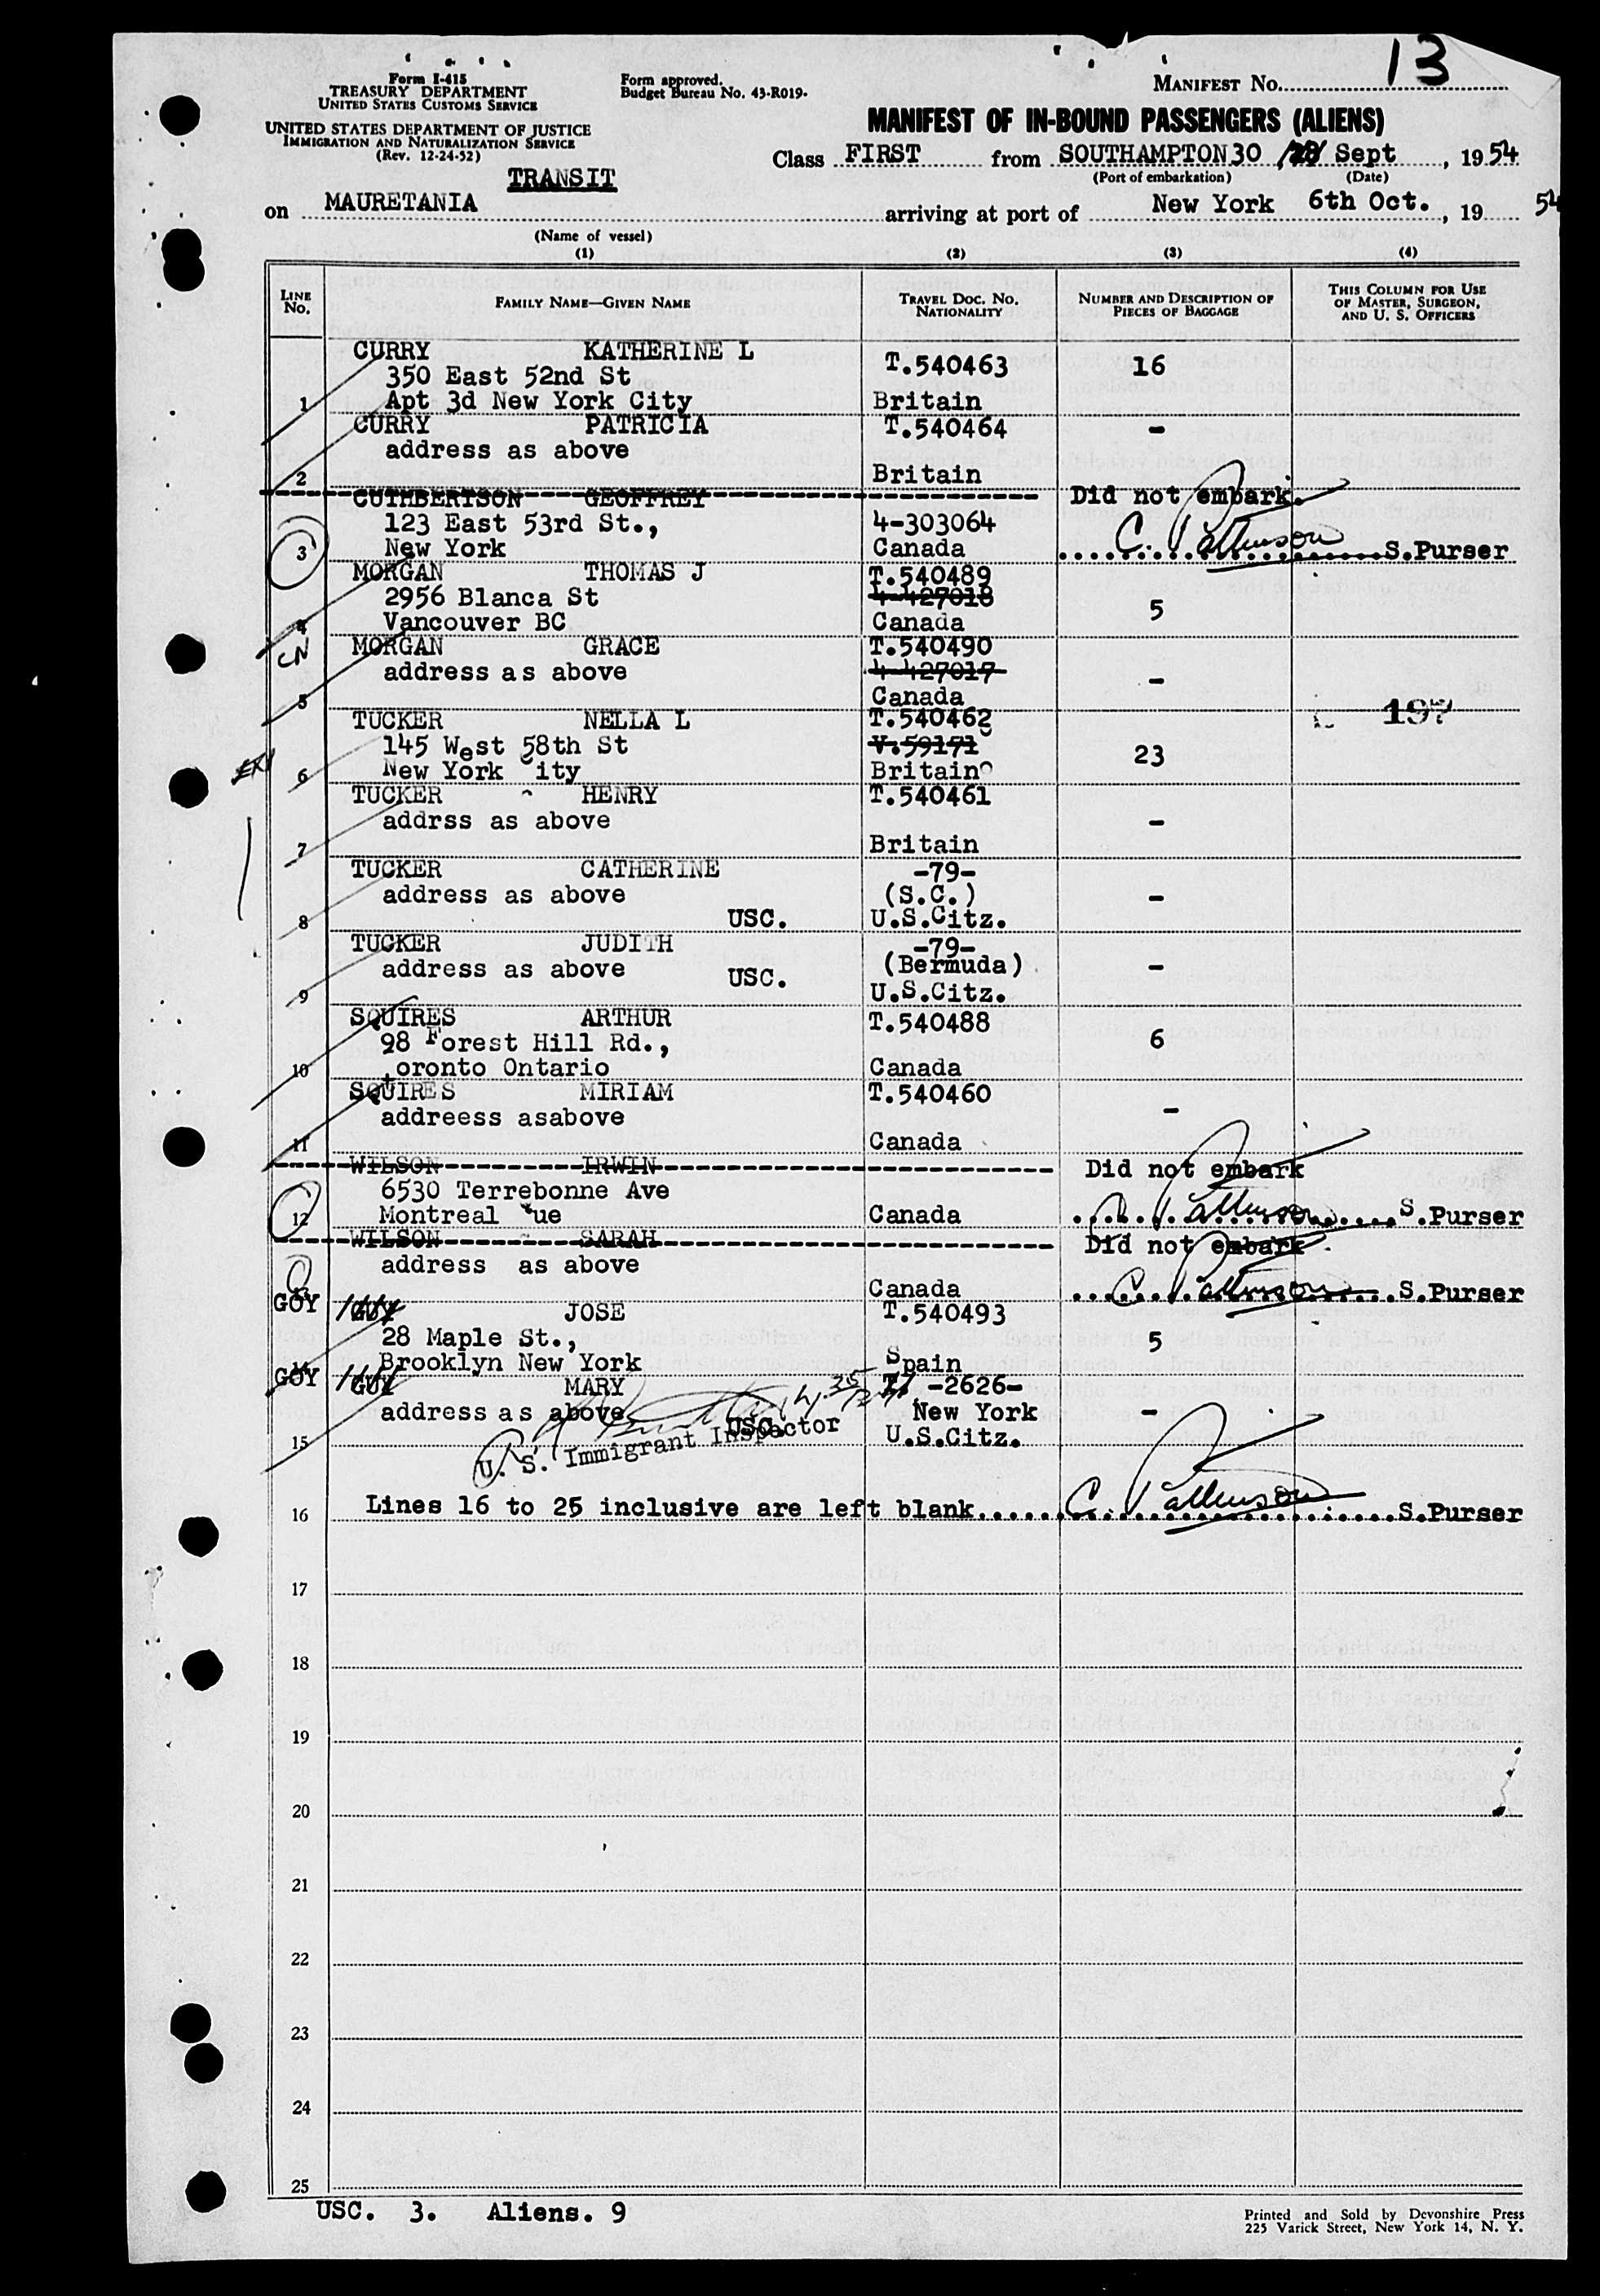 13
Form I-415
TREASURY DEPARTMENT
UNITED STATES CUSTOMS SERVICE
Form approved.
Budget Bureau No. 43-R019-
MANIFEST No.
UNITED STATES DEPARTMENT OF JUSTICE
IMMIGRATION AND NATURALIZATION SERVICE
(Rev. 12-24-52)
MANIFEST OF IN-BOUND PASSENGERS (ALIENS)
Class FIRST from SOUTHAMPTON 30 Sept, 1954
(Port of embarkation) (Date)
TRANSIT
on MAURETANIA arriving at port of New York 6th Oct., 19 54
(Name of vessel)
(1) (2) (3) (4)
LINE No.
FAMILY NAME—GIVEN NAME
TRAVEL DOC. NO. NATIONALITY
NUMBER AND DESCRIPTION OF PIECES OF BAGGAGE
THIS COLUMN FOR USE OF MASTER, SURGEON, AND U. S. OFFICERS
CURRY KATHERINE L
350 East 52nd St T.540463 16
1 Apt 3d New York City Britain
CURRY PATRICIA T.540464 -
address as above
2 Britain
CUTHBERTSON GEOFFREY Did not embark.
123 East 53rd St., 4-303064
3 New York Canada C. Patterson S.Purser
MORGAN THOMAS J T.540489
2956 Blanca St 4-427018 5
4 Vancouver BC Canada
CN MORGAN GRACE T.540490
address as above 4-427017 -
5 Canada
TUCKER NELLA L T.540462 197
145 West 58th St V.59171 23
6 New York City Britain
TUCKER HENRY T.540461
addrss as above -
7 Britain
TUCKER CATHERINE -79-
address as above (S.C.) -
8 USC. U.S.Citz.
TUCKER JUDITH -79-
address as above (Bermuda) -
9 USC. U.S.Citz.
SQUIRES ARTHUR T.540488
98 Forest Hill Rd., 6
10 toronto Ontario Canada
SQUIRES MIRIAM T.540460
addreess asabove -
11 Canada
WILSON IRWIN Did not embark
6530 Terrebonne Ave
12 Montreal Que Canada C. Patterson S.Purser
WILSON SARAH Did not embark
address as above
13 Canada C. Patterson S.Purser
GOY GUY JOSE T.540493
28 Maple St., 5
14 Brooklyn New York Spain
GOY GUY MARY T. -2626-
address as above USC. New York -
15 U. S. Immigrant Inspector U.S.Citz.
16 Lines 16 to 25 inclusive are left blank...... C. Patterson S.Purser
17
18
19
20
21
22
23
24
25
USC. 3. Aliens. 9
Printed and Sold by Devonshire Press
225 Varick Street, New York 14, N. Y.